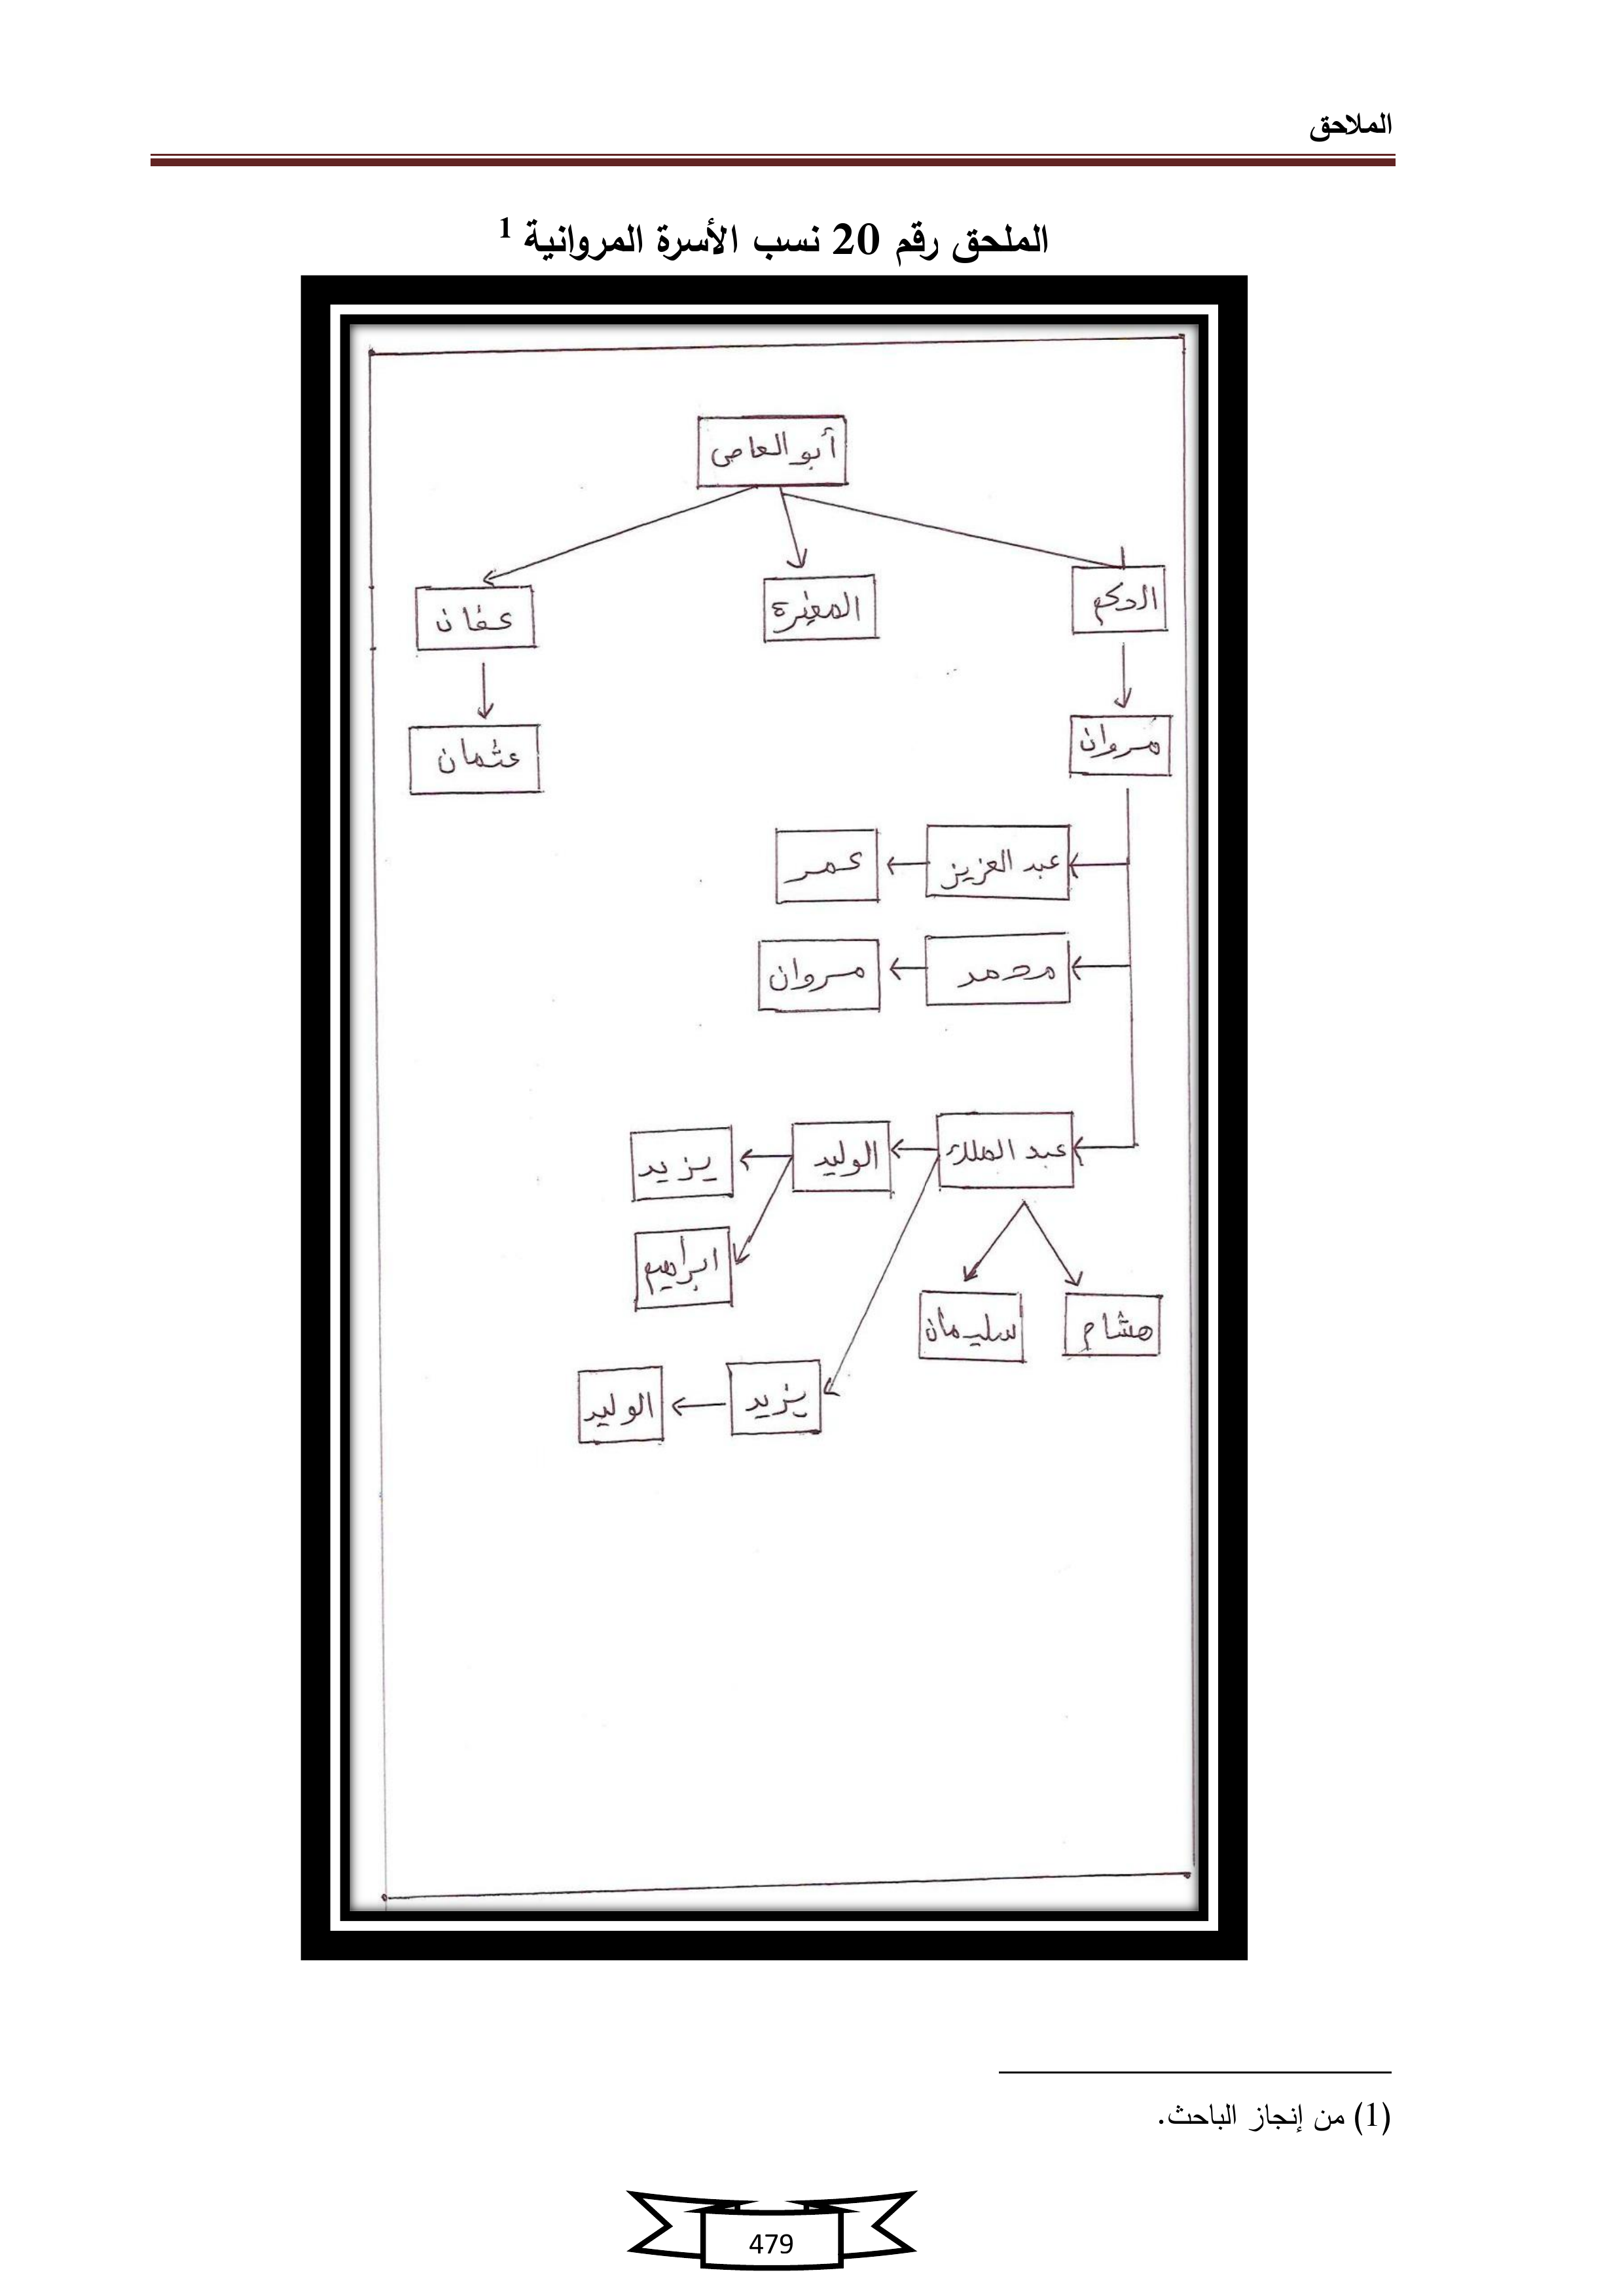 الملاحق
الملحق رقم 20 نسب الأسرة المروانية 1
أبو العاص
الحكم
المغيرة
عفان
مروان
عثمان
عبد العزيز
عمر
محمد
مروان
عبد الملك
الوليد
يزيد
ابراهيم
هشام
سليمان
يزيد
الوليد
(1) من إنجاز الباحث.
479